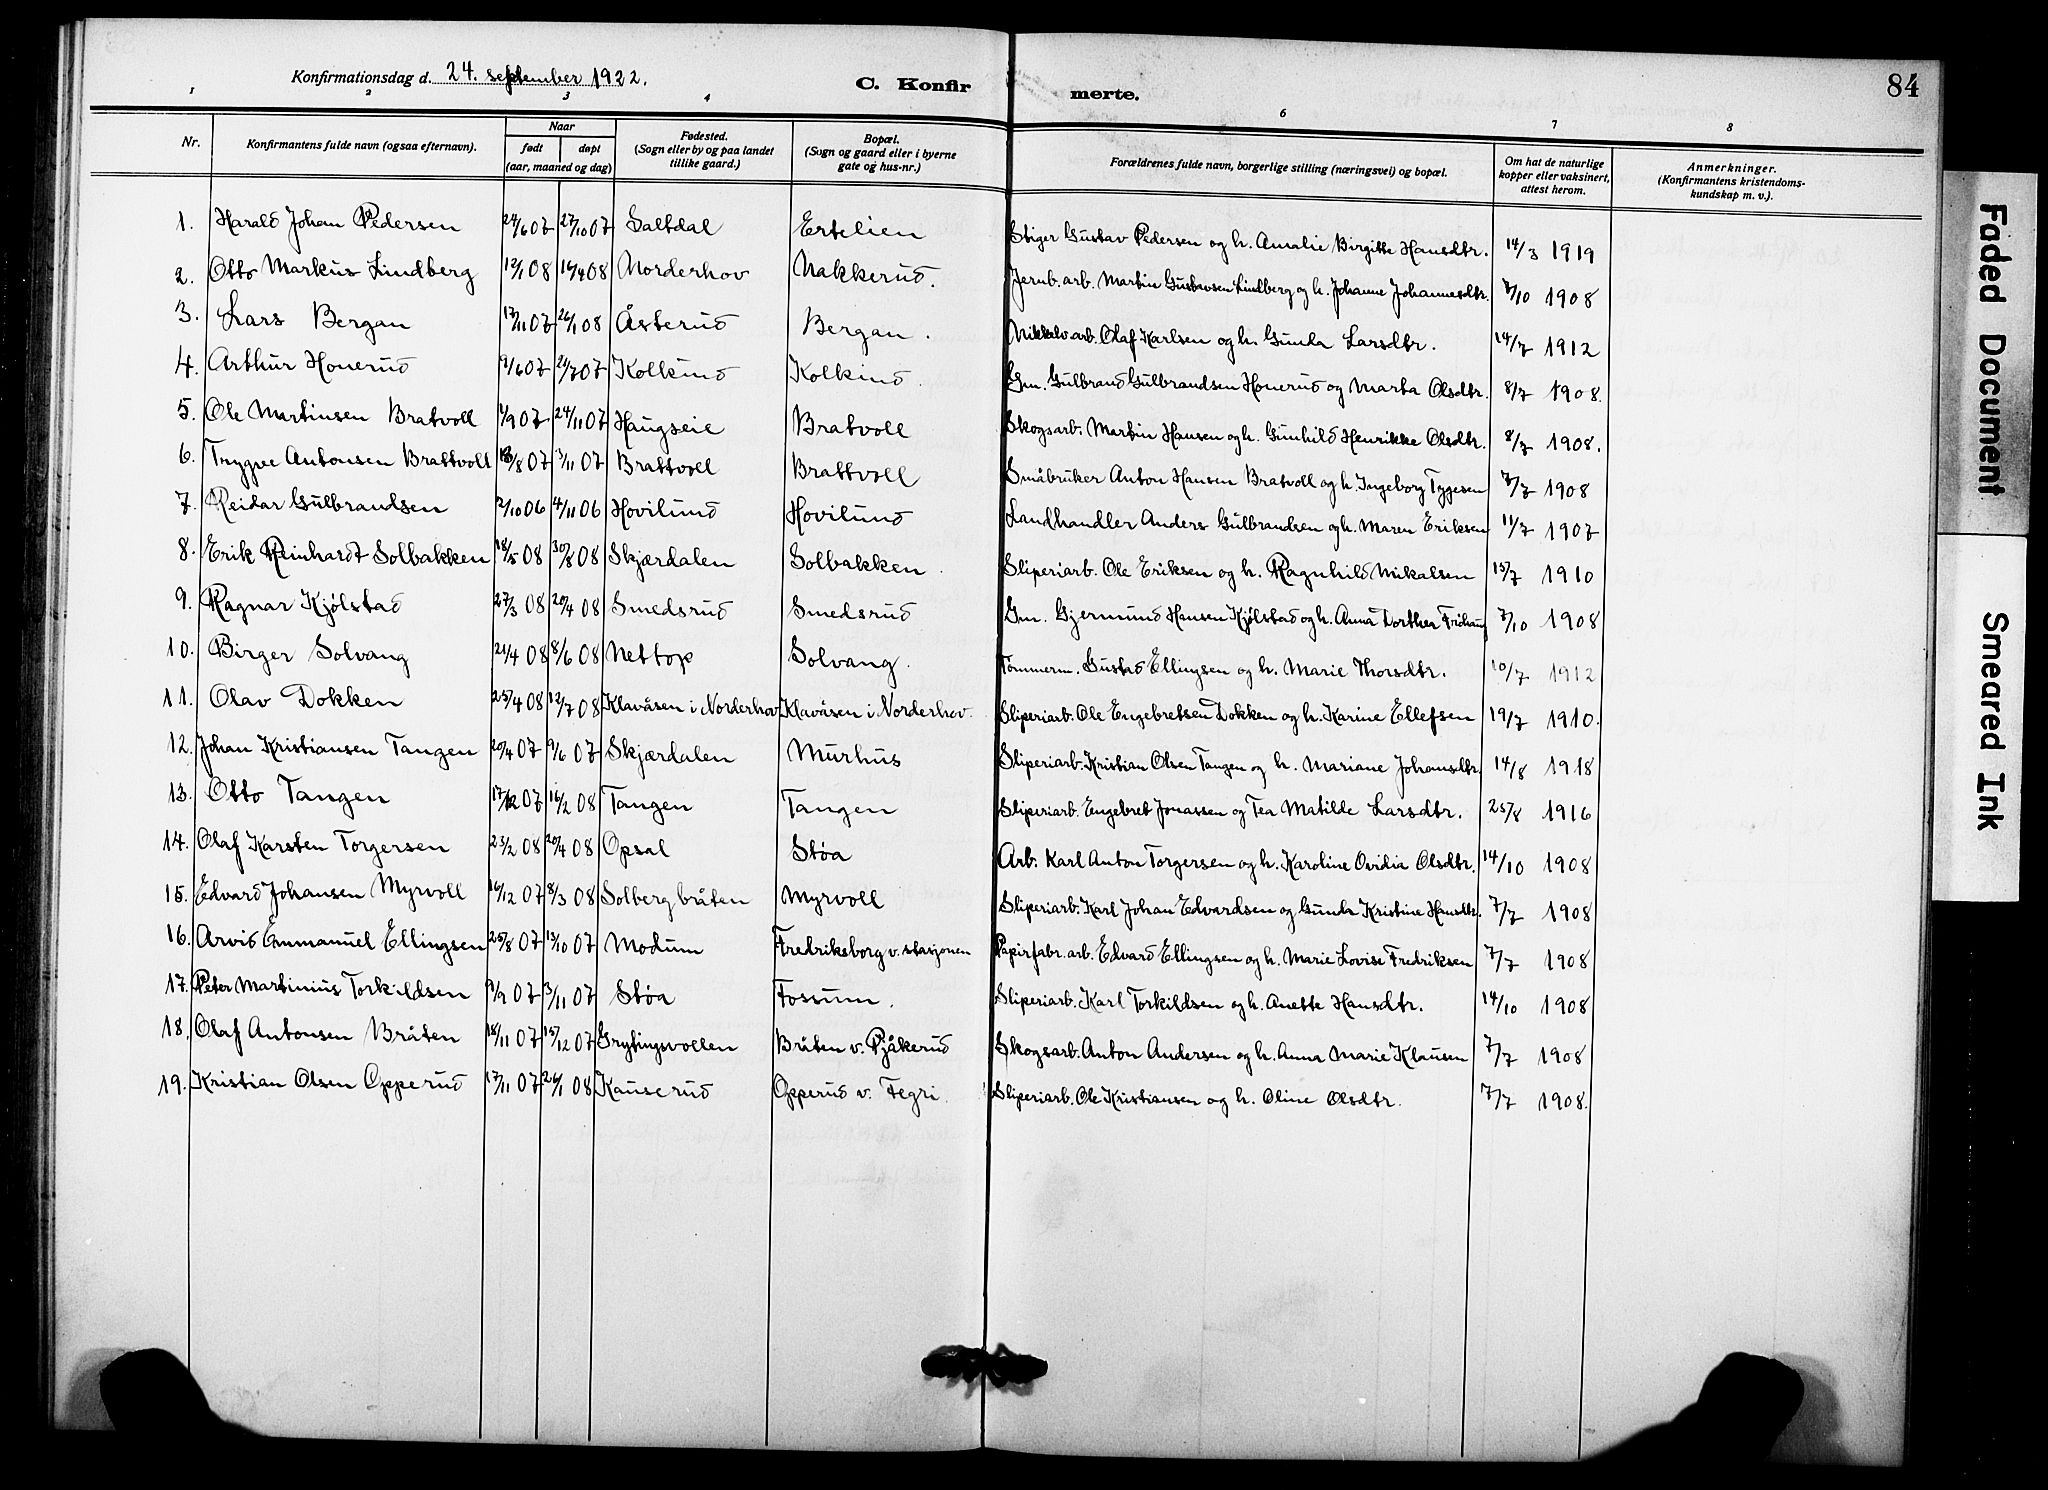 84
Konfirmationsdag d. 24. september 1922.
C. Konfirmerte.
1 2 3 4 6 7 8
Nr. Konfirmantens fulde navn (ogsaa efternavn). Naar født døpt (aar, maaned og dag) Fødested. (Sogn eller by og paa landet tillike gaard.) Bopæl. (Sogn og gaard eller i byerne gate og hus-nr.) Forældrenes fulde navn, borgerlige stilling (næringsvei) og bopæl. Om hat de naturlige kopper eller vaksinert, attest herom. Anmerkninger. (Konfirmantens kristendomskundskap m. v.).
1. Harald Johan Pedersen 24/6 07 27/10 07 Saltdal Ertelien Stiger Gustav Pedersen og h. Amalie Birgitte Hansdtr. 14/3 1919
2. Otto Markus Lindberg 12/1 08 16/4 08 Norderhov Nakkerud. Jernb. arb. Martin Gustavsen Lindberg og h. Johanne Johannesdtr. 7/10 1908
3. Lars Bergan 17/11 07 26/1 08 Åsterud Bergan. Nikkelv. arb. Olaf Karlsen og h. Gunda Larsdtr. 14/7 1912
4. Arthur Honerud 9/6 07 21/7 07 Kolkind Kolkind. Gm. Gulbrand Gulbrandsen Honerud og Marta Olsdtr. 8/7 1908.
5. Ole Martinsen Bratvoll 1/9 07 24/11 07 Haugseie Bratvoll Skogsarb. Martin Hansen og h. Gunhild Henrikke Olsdtr. 8/7 1908.
6. Trygve Antonsen Brattvoll 18/8 07 3/11 07 Brattvoll Brattvoll Småbruker Anton Hansen Bratvoll og h. Ingeborg Tygesen 7/7 1908
7. Reidar Gulbrandsen 2/10 06 4/11 06 Hovilund Hovilund Landhandler Anders Gulbrandsen og h. Maren Eriksen 11/7 1907
8. Erik Reinhardt Solbakken 18/5 08 30/8 08 Skjærdalen Solbakken. Sliperiarb. Ole Eriksen og h. Ragnhild Mikalsen 15/7 1910
9. Ragnar Kjølstad 27/3 08 20/4 08 Smedsrud Smedsrud Gm. Gjermund Hansen Kjølstad og h. Anna Dorthea 7/10 1908
10. Birger Solvang 21/4 08 8/6 08 Nettop Solvang. Tømmerm. Gustad Ellingsen og h. Marie Thorsdtr. 10/7 1912
11. Olav Dokken 25/4 08 12/7 08 Klavåsen i Norderhov Klavåsen i Norderhov. Sliperiarb. Ole Engebretsen Dokken og h. Karine Ellefsen 19/7 1910.
12. Johan Kristiansen Tangen 20/4 07 9/6 07 Skjærdalen Murhus Sliperiarb. Kristian Olsen Tangen og h. Mariane Johansdtr. 14/8 1918
13. Otto Tangen 17/12 07 16/2 08 Tangen Tangen Sliperiarb. Engebret Jonassen og Tea Matilde Larsdtr. 25/8 1916
14. Olaf Karsten Torgersen 23/2 08 20/4 08 Opsal Støa Arb. Karl Anton Torgersen og h. Karoline Ovidia Olsdtr. 14/10 1908
15. Edvard Johansen Myrvoll 16/12 07 8/3 08 Solberg bråten Myrvoll Sliperiarb. Karl Johan Edvardsen og Gunda Kristine Hansdtr. 7/7 1908
16. Arvid Emmanuel Ellingsen 25/8 07 13/10 07 Modum Fredriksborg v. stasjonen Papirfabr. arb. Edvard Ellingsen og h. Marie Lovise Fredriksen 7/7 1908
17. Peter Martinius Torkildsen 9/9 07 3/11 07 Støa Fossum. Sliperiarb. Karl Torkildsen og h. Anette Hansdtr. 14/10 1908
18. Olaf Antonsen Bråten 18/11 07 15/12 07 Grytingsvollen Bråten v. Pjåkerud Skogsarb. Anton Andersen og h. Anna Marie Klausen 7/7 1908
19. Kristian Olsen Opperud 17/11 07 26/1 08 Kauserud Opperud v. Tegri. Sliperiarb. Ole Kristiansen og h. Oline Olsdtr. 7/7 1908.
Faded Document
Smeared Ink